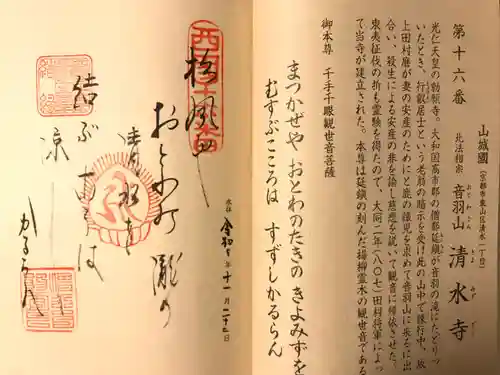 第十六番
山城國(京都市東山区清水一丁目)
北法相宗 音羽山 清水寺
光仁天皇の勅願寺。大和国高市郡の僧都延鎮が音羽の滝にたどりつ
いたとき、行叡居士という老翁の暗示を受け此の山中で錬行中、坂
上田村麿が妻の安産のためにと鹿の胎児を求めて音羽山に来るに出
合い、殺生による安産の非を諭し慈悲を説いて観音に帰依させた。
東夷征伐の折も霊験を得たので、大同二年(八〇七)田村将軍によっ
て当寺が建立された。本尊は延鎮の刻んだ楊柳霊木の観世音である
御本尊 千手千眼観世音菩薩
まつかぜや おとわのたきの きよみずを
むすぶこころは すずしかるらん
令和 年十一月二十 日
松風や
おとわの瀧の
清水を
結ぶ 心は
涼し
かるらん